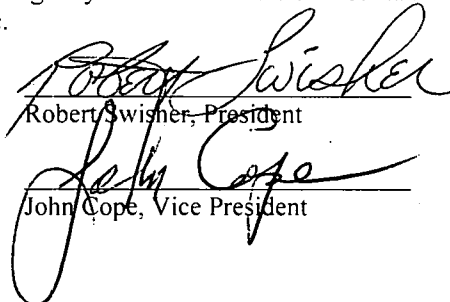 Robert Swisher
Robert Swisher, President
John Cope
John Cope, Vice President